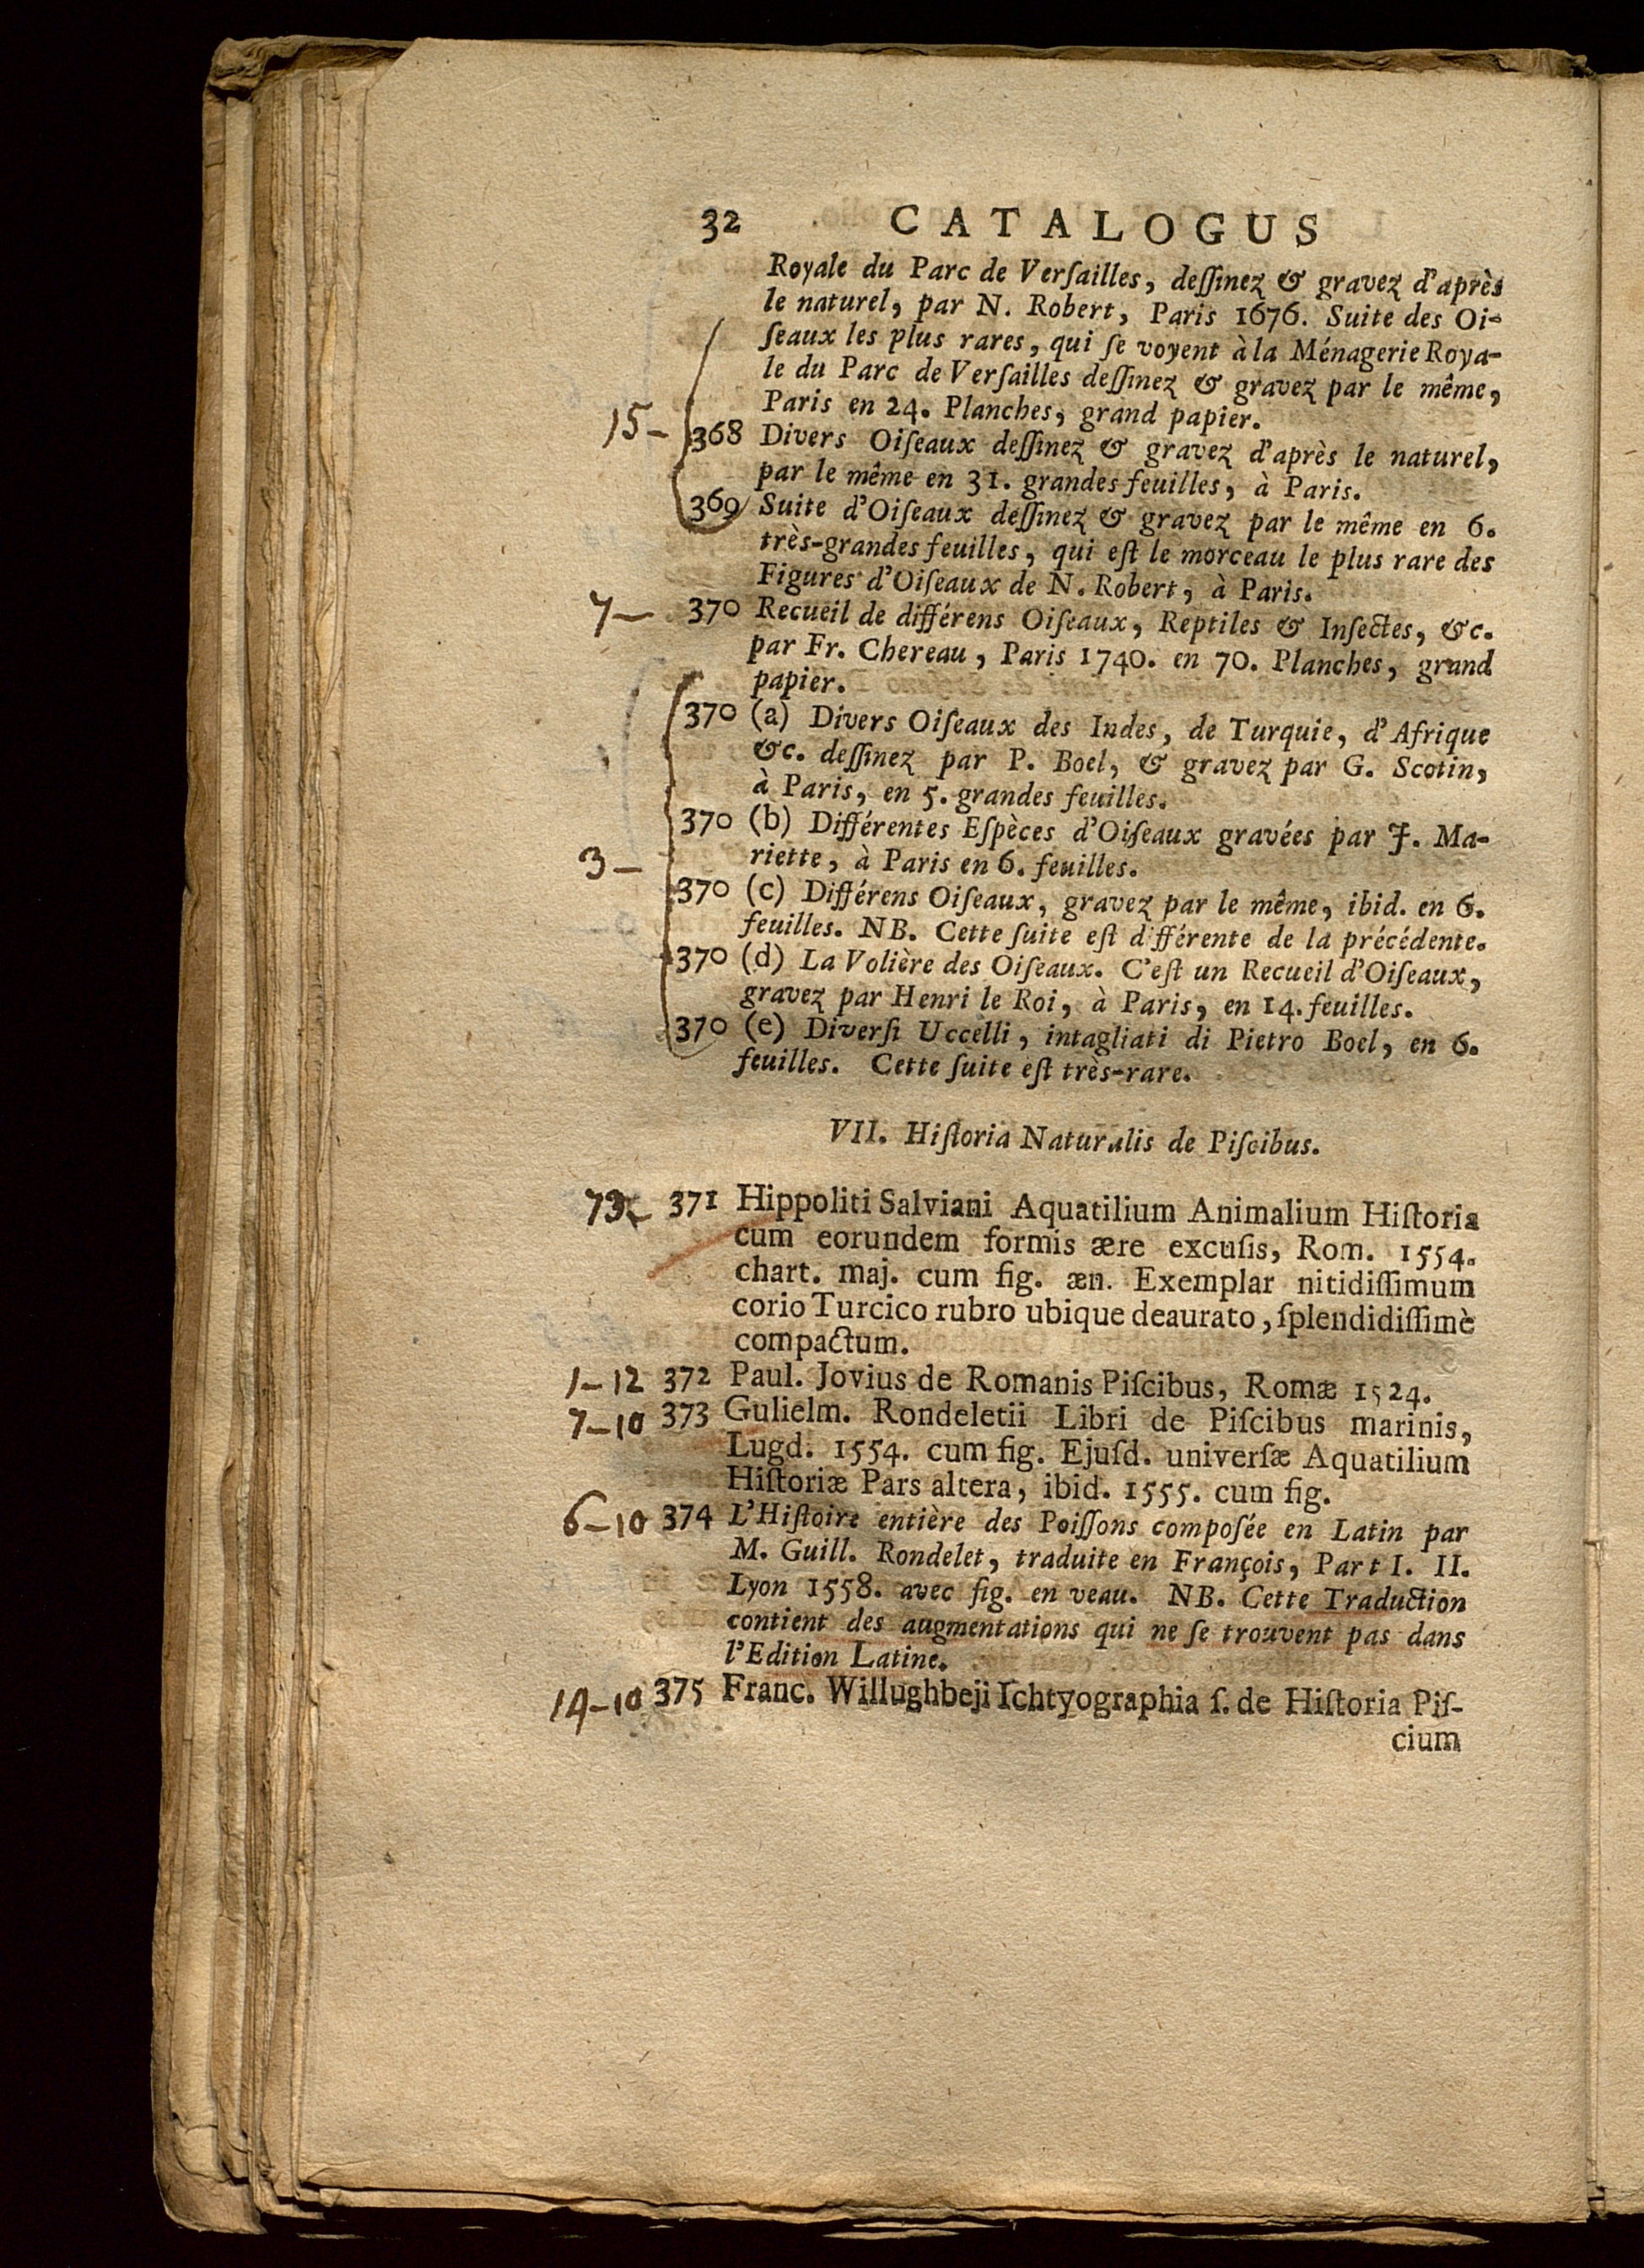 32 CATALOGUS
Royale du Parc de Verſailles, deſſinez & gravez d'après
le naturel, par N. Robert, Paris 1676. Suite des Oi-
ſeaux les plus rares, qui ſe voyent à la Ménagerie Roya-
le du Parc de Verſailles deſſinez & gravez par le même,
Paris en 24. Planches, grand papier.
15- 368 Divers Oiſeaux deſſinez & gravez d'après le naturel,
par le même en 31. grandes feuilles, à Paris.
369 Suite d'Oiſeaux deſſinez & gravez par le même en 6.
très-grandes feuilles, qui eſt le morceau le plus rare des
Figures d'Oiſeaux de N. Robert, à Paris.
7- 370 Recueil de différens Oiſeaux, Reptiles & Inſectes, &c.
par Fr. Chereau, Paris 1740. en 70. Planches, grand
papier.
370 (a) Divers Oiſeaux des Indes, de Turquie, d'Afrique
&c. deſſinez par P. Boel, & gravez par G. Scotin,
à Paris, en 5. grandes feuilles.
370 (b) Différentes Eſpèces d'Oiſeaux gravées par J. Ma-
3- riette, à Paris en 6. feuilles.
370 (c) Différens Oiſeaux, gravez par le même, ibid. en 6.
feuilles. NB. Cette ſuite eſt différente de la précédente.
370 (d) La Volière des Oiſeaux. C'eſt un Recueil d'Oiſeaux,
gravez par Henri le Roi, à Paris, en 14. feuilles.
370 (e) Diverſi Uccelli, intagliati di Pietro Boel, en 6.
feuilles. Cette ſuite eſt très-rare.
VII. Hiſtoria Naturalis de Piſcibus.
371 Hippoliti Salviani Aquatilium Animalium Hiſtoria
cum eorundem formis ære excuſis, Rom. 1554.
chart. maj. cum fig. æn. Exemplar nitidiſſimum
corio Turcico rubro ubique deaurato, ſplendidiſſimè
compactum.
1-12 372 Paul. Jovius de Romanis Piſcibus, Romæ 1524.
7-10 373 Gulielm. Rondeletii Libri de Piſcibus marinis,
Lugd. 1554. cum fig. Ejuſd. univerſæ Aquatilium
Hiſtoriæ Pars altera, ibid. 1555. cum fig.
6-10 374 L'Hiſtoire entière des Poiſſons compoſée en Latin par
M. Guill. Rondelet, traduite en François, Part I. II.
Lyon 1558. avec fig. en veau. NB. Cette Traduction
contient des augmentations qui ne ſe trouvent pas dans
l'Edition Latine.
14-10 375 Franc. Willughbeji Ichtyographia ſ. de Hiſtoria Piſ-
cium